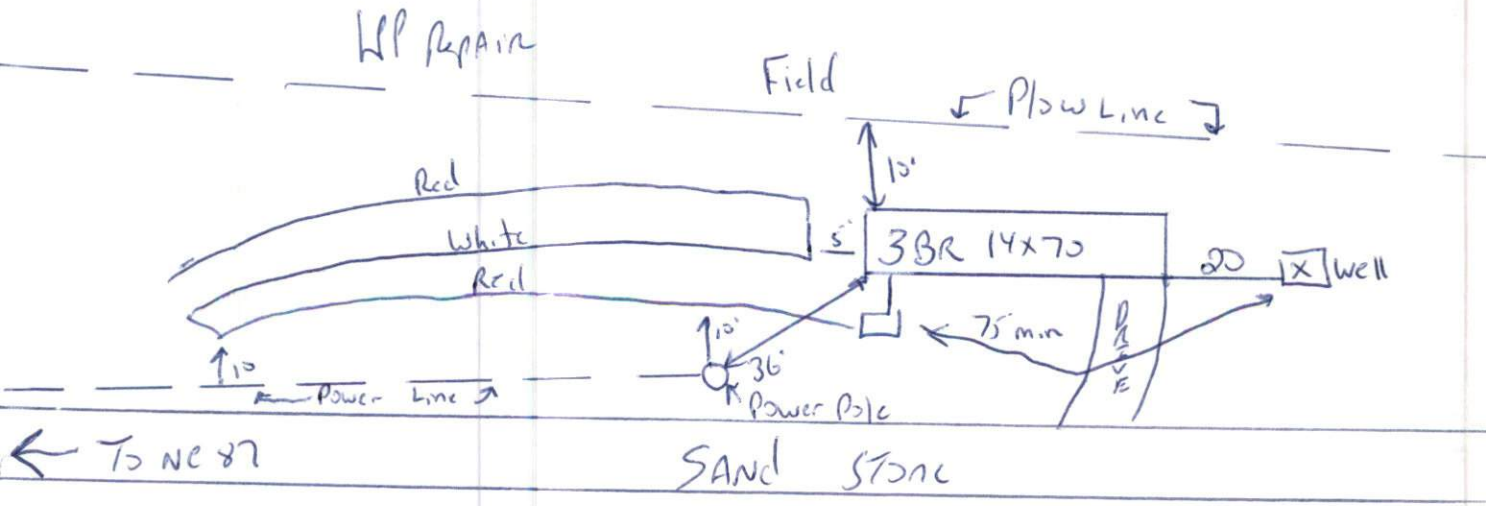 WP Repair
Field
Plow Line
10'
Red
White
Red
5'
3BR 14x70
20
X
Well
75 min
DRIVE
10'
36'
10
Power Line
Power Pole
To NC 87
SANd STONE